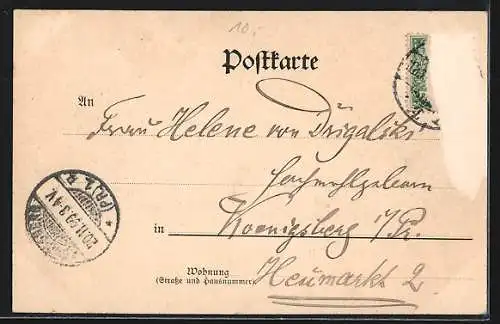 10.-
Postkarte
An
Frau Helene von Drigalski
Hochwohlgeboren
in Koenigsberg i/Pr.
Wohnung
(Straße und Hausnummer)
Heumarkt 2
(PR.) 1.
20.11.99.3-4V.